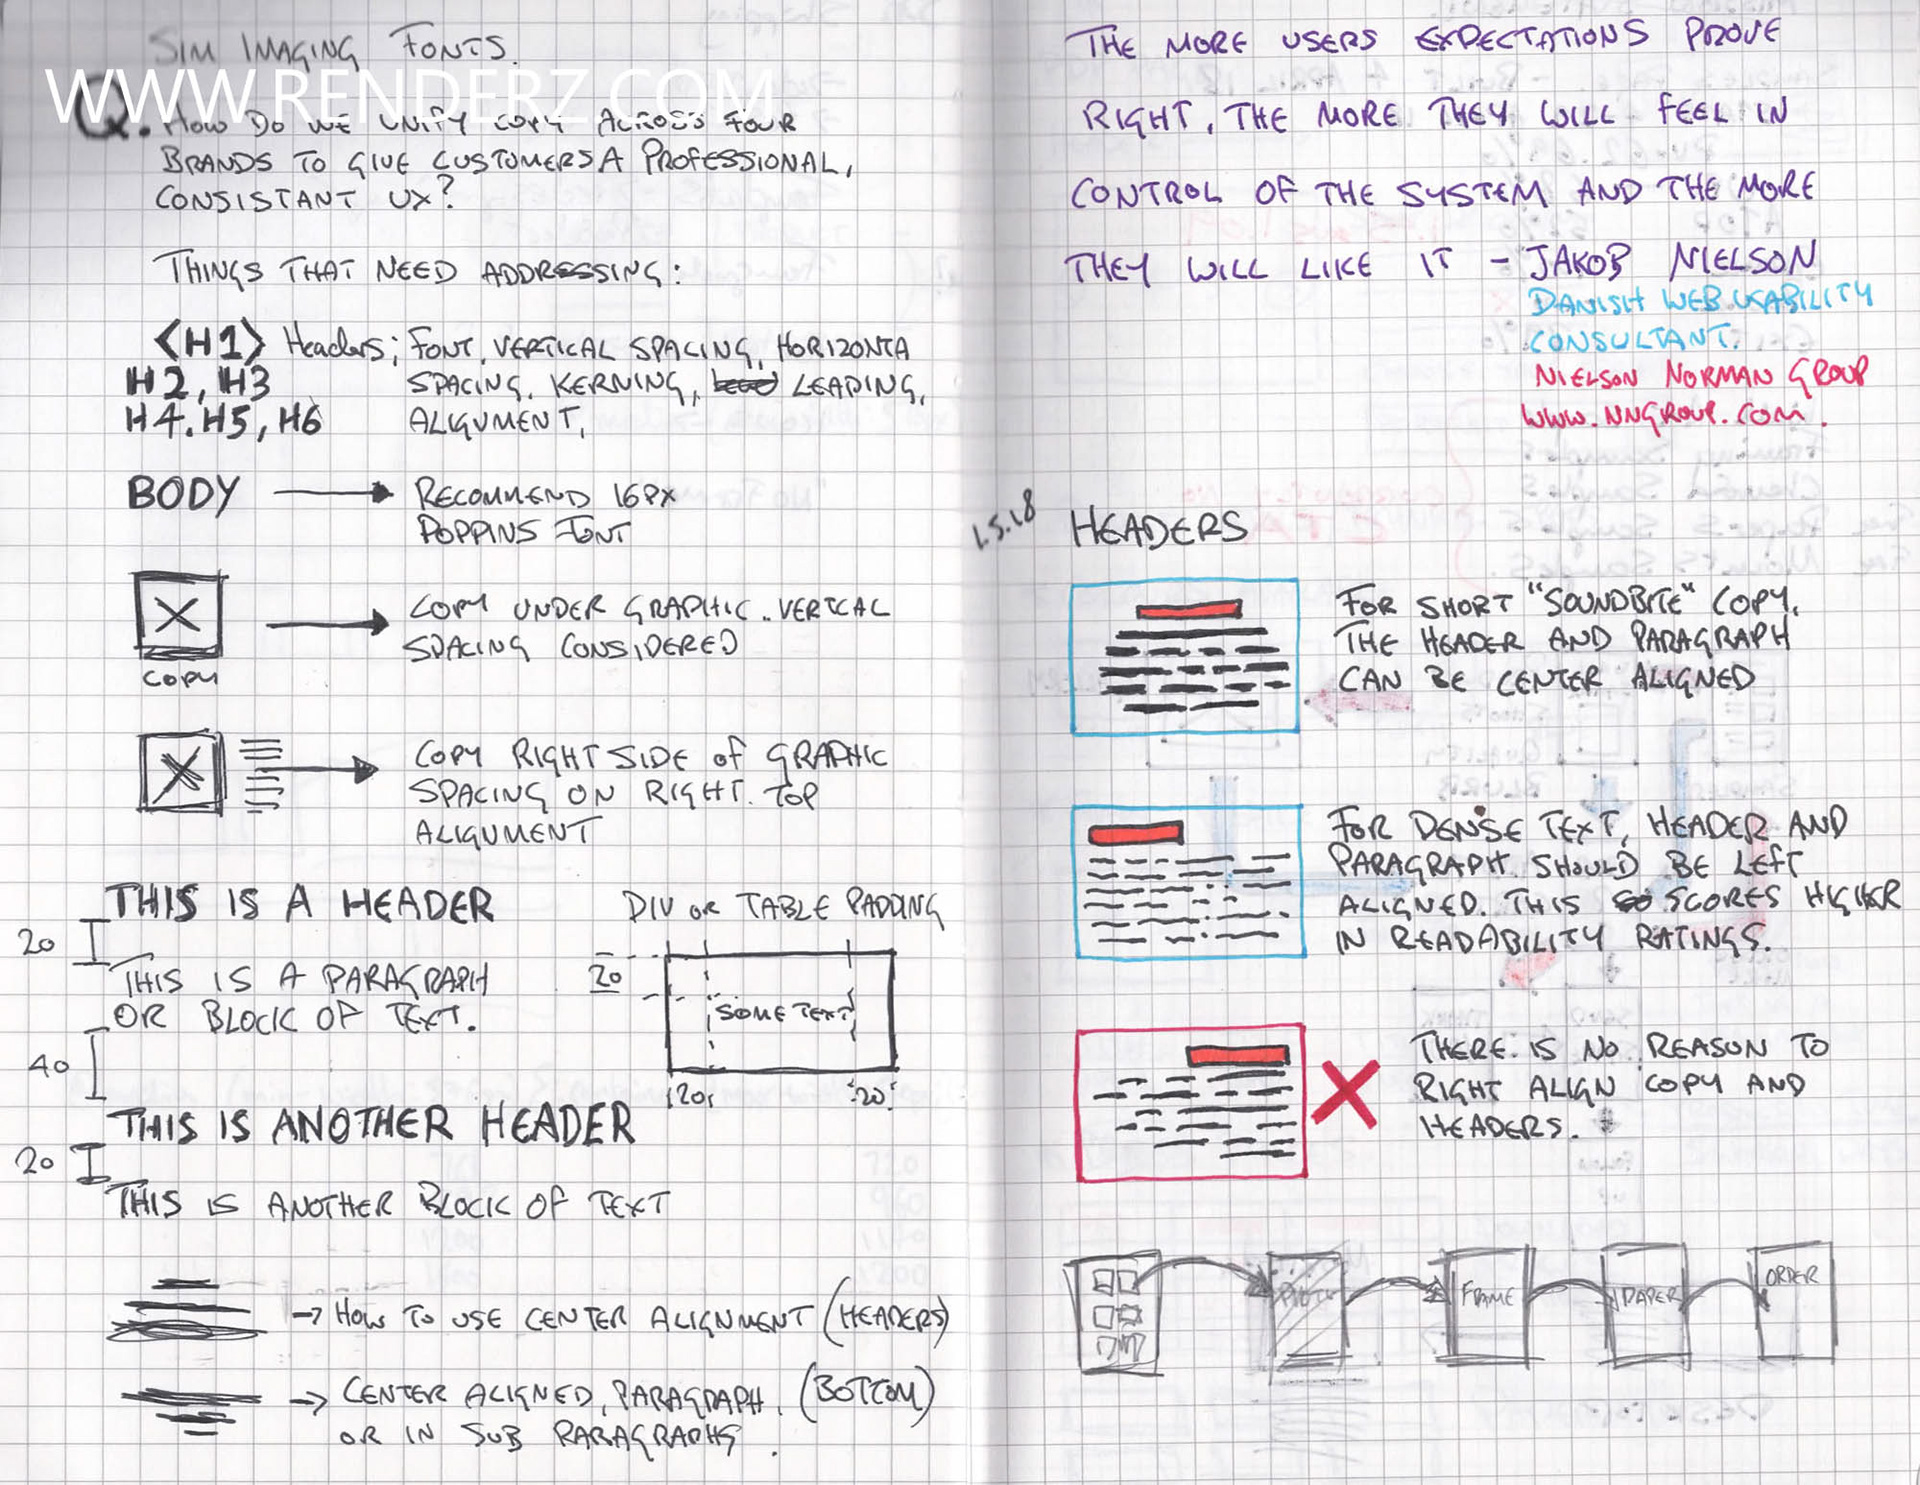 SIM IMAGING FONTS.
WWW.RENDERZ.COM
Q. HOW DO WE UNIFY COPY ACROSS FOUR
BRANDS TO GIVE CUSTOMERS A PROFESSIONAL,
CONSISTANT UX?
THINGS THAT NEED ADDRESSING:
<H1> Headers; FONT, VERTICAL SPACING, HORIZONTA
H2, H3 SPACING, KERNING, LEADING,
H4. H5, H6 ALIGNMENT,
BODY → RECOMMEND 16PX
POPPINS FONT
COPY UNDER GRAPHIC. VERTICAL
SPACING CONSIDERED
COPY
COPY RIGHT SIDE OF GRAPHIC
SPACING ON RIGHT. TOP
ALIGNMENT
THIS IS A HEADER
20
THIS IS A PARAGRAPH
OR BLOCK OF TEXT.
40
THIS IS ANOTHER HEADER
20
THIS IS ANOTHER BLOCK OF TEXT
DIV OR TABLE PADDING
20
SOME TEXT
20 20
→ HOW TO USE CENTER ALIGNMENT (HEADERS)
→ CENTER ALIGNED, PARAGRAPH, (BOTTOM)
OR IN SUB PARAGRAPHS.
THE MORE USERS EXPECTATIONS PROVE
RIGHT, THE MORE THEY WILL FEEL IN
CONTROL OF THE SYSTEM AND THE MORE
THEY WILL LIKE IT - JAKOB NIELSON
DANISH WEB USABILITY
CONSULTANT.
NIELSON NORMAN GROUP
WWW.NNGROUP.COM.
1.5.18
HEADERS
FOR SHORT "SOUNDBITE" COPY,
THE HEADER AND PARAGRAPH
CAN BE CENTER ALIGNED
FOR DENSE TEXT, HEADER AND
PARAGRAPH SHOULD BE LEFT
ALIGNED. THIS SCORES HIGHER
IN READABILITY RATINGS.
THERE IS NO REASON TO
RIGHT ALIGN COPY AND
HEADERS.
FRAME
PAPER
ORDER